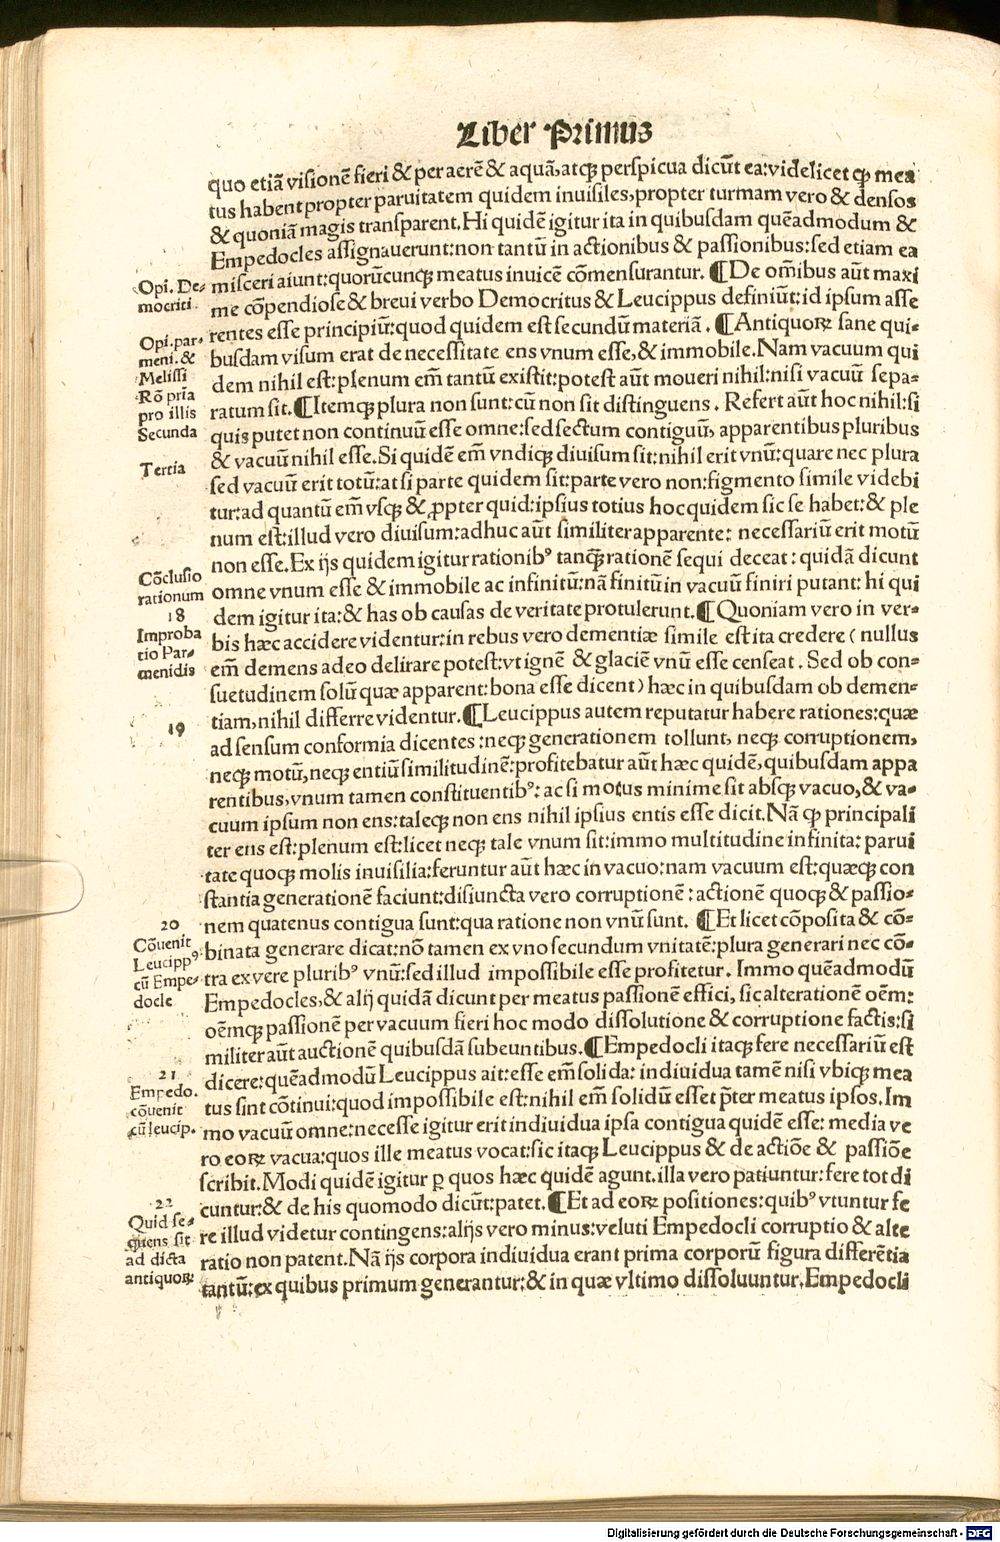 Liber Primus
quo etiã visionẽ fieri & per aerẽ & aquã, atqꝫ perspicua dicũt ea: videlicet ꝙ mea
tus habent propter paruitatem quidem inuisiles, propter turmam vero & densos
& quoniã magis transparent. Hi quidẽ igitur ita in quibusdam quẽadmodum &
Empedocles assignauerunt: non tantũ in actionibus & passionibus: sed etiam ea
Opi. De-
mocriti.
misceri aiunt: quorũcunqꝫ meatus inuicẽ cõmensurantur. ¶ De om̃ibus aũt maxi
me cõpendiose & breui verbo Democritus & Leucippus definiũt: id ipsum asse
rentes esse principiũ: quod quidem est secundũ materiã. ¶ Antiquoꝝ sane qui-
Opi. par-
meni. &
Melissi
Rõ pria
pro illis
Secunda
busdam visum erat de necessitate ens vnum esse, & immobile. Nam vacuum qui
dem nihil est: plenum em̃ tantũ existit: potest aũt moueri nihil: nisi vacuũ sepa-
ratum sit. ¶ Itemqꝫ plura non sunt: cũ non sit distinguens. Refert aũt hoc nihil: si
quis putet non continuũ esse omne: sed sectum contiguũ, apparentibus pluribus
Tertia
& vacuũ nihil esse. Si quidẽ em̃ vndiqꝫ diuisum sit: nihil erit vnũ: quare nec plura
sed vacuũ erit totũ: at si parte quidem sit: parte vero non: figmento simile videbi
tur: ad quantũ em̃ vsqꝫ & ꝓpter quid: ipsius totius hoc quidem sic se habet: & ple
num est: illud vero diuisum: adhuc aũt similiter apparente: necessariũ erit motũ
non esse. Ex ijs quidem igitur rationibꝰ tanqꝫ̃ rationẽ sequi deceat: quidã dicunt
Cõclusio
rationum
omne vnum esse & immobile ac infinitũ: nã finitũ in vacuũ finiri putant: hi qui
dem igitur ita: & has ob causas de veritate protulerunt. ¶ Quoniam vero in ver-
18
Improba
tio Par-
menidis
bis hæc accidere videntur: in rebus vero dementiæ simile est ita credere ( nullus
em̃ demens adeo delirare potest: vt ignẽ & glaciẽ vnũ esse censeat. Sed ob con-
suetudinem solũ quæ apparent: bona esse dicent ) hæc in quibusdam ob demen-
tiam, nihil differre videntur. ¶ Leucippus autem reputatur habere rationes: quæ
19
ad sensum conformia dicentes: neqꝫ generationem tollunt, neqꝫ corruptionem,
neqꝫ motũ, neqꝫ entiũ similitudinẽ: profitebatur aũt hæc quidẽ, quibusdam appa
rentibus, vnum tamen constituentibꝰ: ac si motus minime sit absqꝫ vacuo, & va-
cuum ipsum non ens: taleqꝫ non ens nihil ipsius entis esse dicit. Nã ꝙ principali
ter ens est: plenum est: licet neqꝫ tale vnum sit: immo multitudine infinita: parui
tate quoqꝫ molis inuisilia: feruntur aũt hæc in vacuo: nam vacuum est: quæqꝫ con
stantia generationẽ faciunt: disiuncta vero corruptionẽ: actionẽ quoqꝫ & passio-
nem quatenus contigua sunt: qua ratione non vnũ sunt. ¶ Et licet cõposita & cõ-
20
Cõuenit
Leucippꝰ
cũ Empe-
docle
binata generare dicat: nõ tamen ex vno secundum vnitatẽ: plura generari nec cõ-
tra ex vere pluribꝰ vnũ: sed illud impossibile esse profitetur. Immo quẽadmodũ
Empedocles, & alij quidã dicunt per meatus passionẽ effici, sic alterationẽ oẽm:
oẽmqꝫ passionẽ per vacuum fieri hoc modo dissolutione & corruptione factis: si
militer aũt auctionẽ quibusdã subeuntibus. ¶ Empedocli itaqꝫ fere necessariũ est
21
Empedo.
cõuenit
cũ leucip.
dicere: quẽadmodũ Leucippus ait: esse em̃ solida: indiuidua tamẽ nisi vbiqꝫ mea
tus sint cõtinui: quod impossibile est: nihil em̃ solidũ esset p̃ter meatus ipsos. Im
mo vacuũ omne: necesse igitur erit indiuidua ipsa contigua quidẽ esse: media ve
ro eoꝝ vacua: quos ille meatus vocat: sic itaqꝫ Leucippus & de actiõe & passiõe
scribit. Modi quidẽ igitur ꝑ quos hæc quidẽ agunt, illa vero patiuntur: fere tot di
cuntur: & de his quomodo dicũt: patet. ¶ Et ad eoꝝ positiones: quibꝰ vtuntur fe
22
Quid se-
quens sit
ad dicta
antiquoꝝ
re illud videtur contingens: alijs vero minus: veluti Empedocli corruptio & alte
ratio non patent. Nã ijs corpora indiuidua erant prima corporũ figura differẽtia
tantũ: ex quibus primum generantur: & in quæ vltimo dissoluuntur, Empedocli
Digitalisierung gefördert durch die Deutsche Forschungsgemeinschaft - DFG